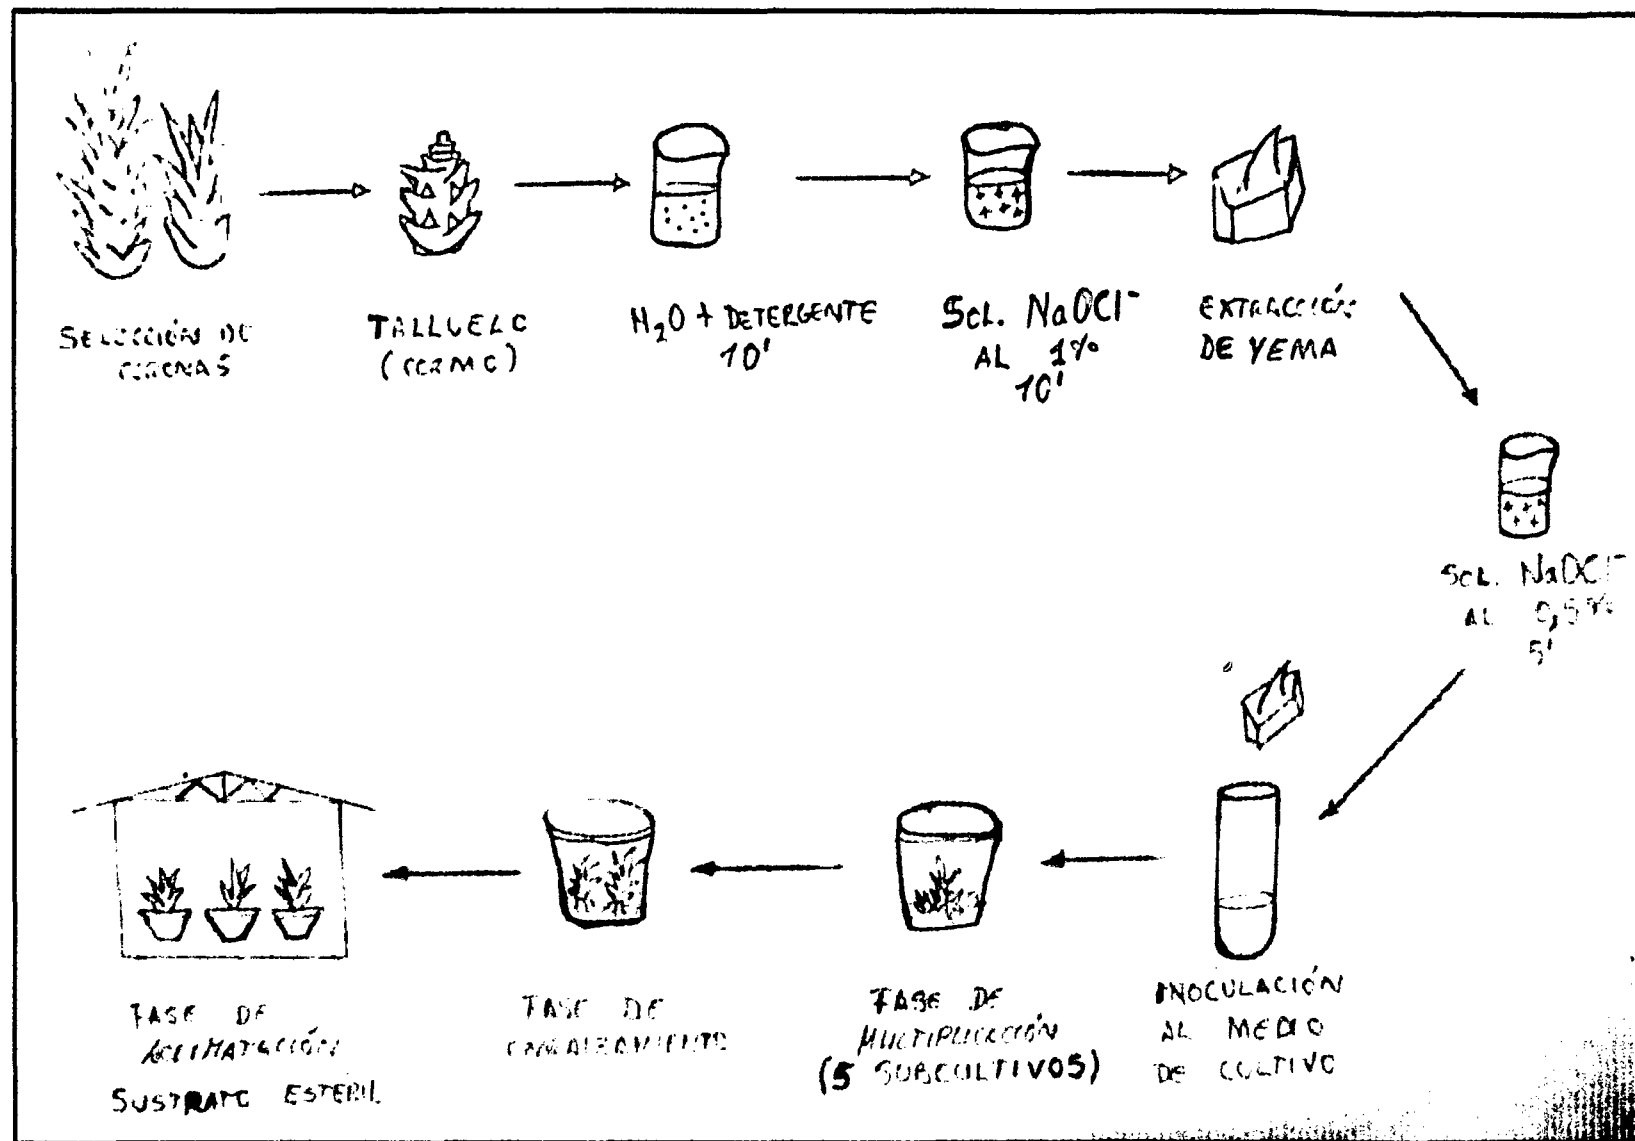 SELECCIÓN DE
CORONAS
TALLUELO
(CORMO)
H₂O + DETERGENTE
10'
SOL. NaOCl⁻
AL 1%
10'
EXTRACCIÓN
DE YEMA
SOL. NaOCl⁻
AL 0,5%
5'
INOCULACIÓN
AL MEDIO
DE CULTIVO
FASE DE
MULTIPLICACIÓN
(5 SUBCULTIVOS)
FASE DE
ENRAIZAMIENTO
FASE DE
ACLIMATACIÓN
SUSTRATO ESTERIL